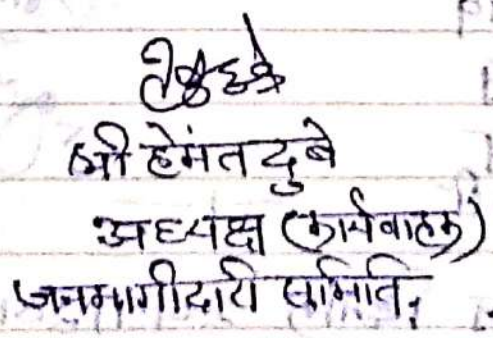 श्री हेमंत दुबे
अध्यक्ष (कार्यवाहक)
जनभागीदारी समिति,